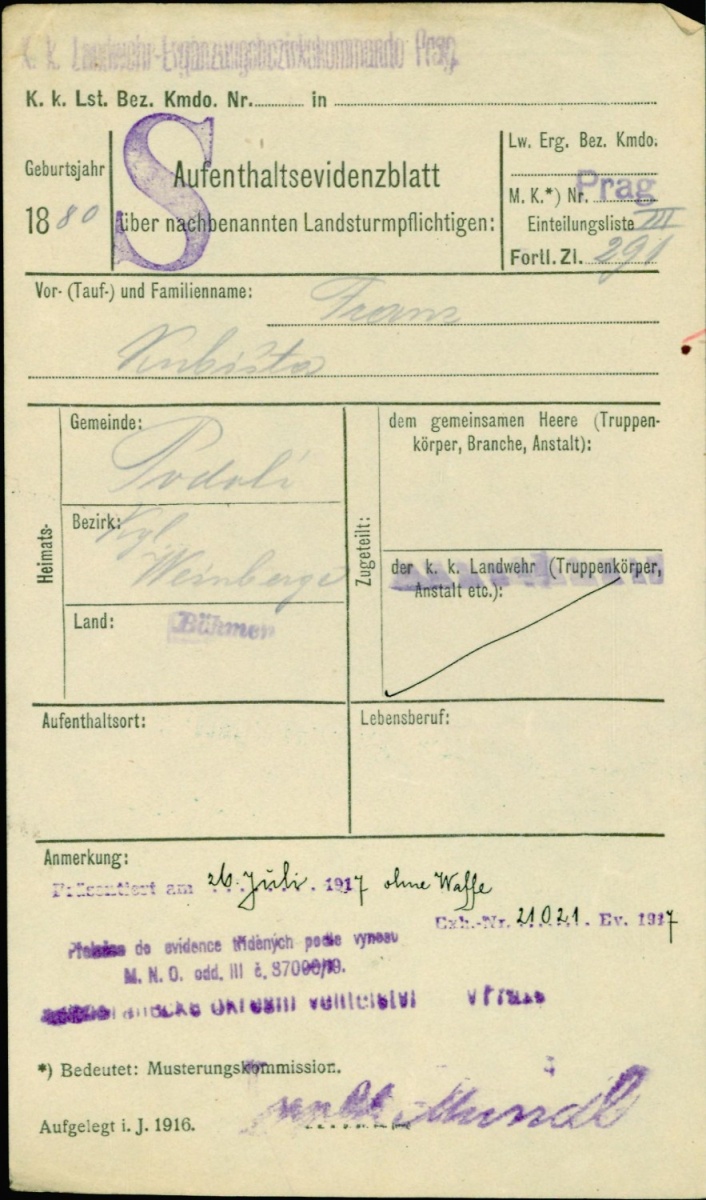 K. k. Landwehr-Ergänzungsbezirkskommando Prag.
K. k. Lst. Bez. Kmdo. Nr. in
Geburtsjahr
1880
S
Aufenthaltsevidenzblatt
über nachbenannten Landsturmpflichtigen:
Lw. Erg. Bez. Kmdo.
Prag
M. K.*) Nr.
Einteilungsliste III
Fortl. Zl. 291
Vor- (Tauf-) und Familienname: Franz
Kubišta
Heimats-
Gemeinde:
Podolí
Bezirk: Kgl.
Weinberge
Land: Böhmen
Zugeteilt:
dem gemeinsamen Heere (Truppen-
körper, Branche, Anstalt):
der k. k. Landwehr (Truppenkörper,
Anstalt etc.):
Aufenthaltsort:
Lebensberuf:
Anmerkung:
Präsentiert am 26. Juli 1917 ohne Waffe
Exh.-Nr. 21021. Ev. 1917
do evidence tříděných podle vynosu
M. N. O. odd. III č. 37000/19.
okresní velitelství v Praze
*) Bedeutet: Musterungskommission.
Aufgelegt i. J. 1916.